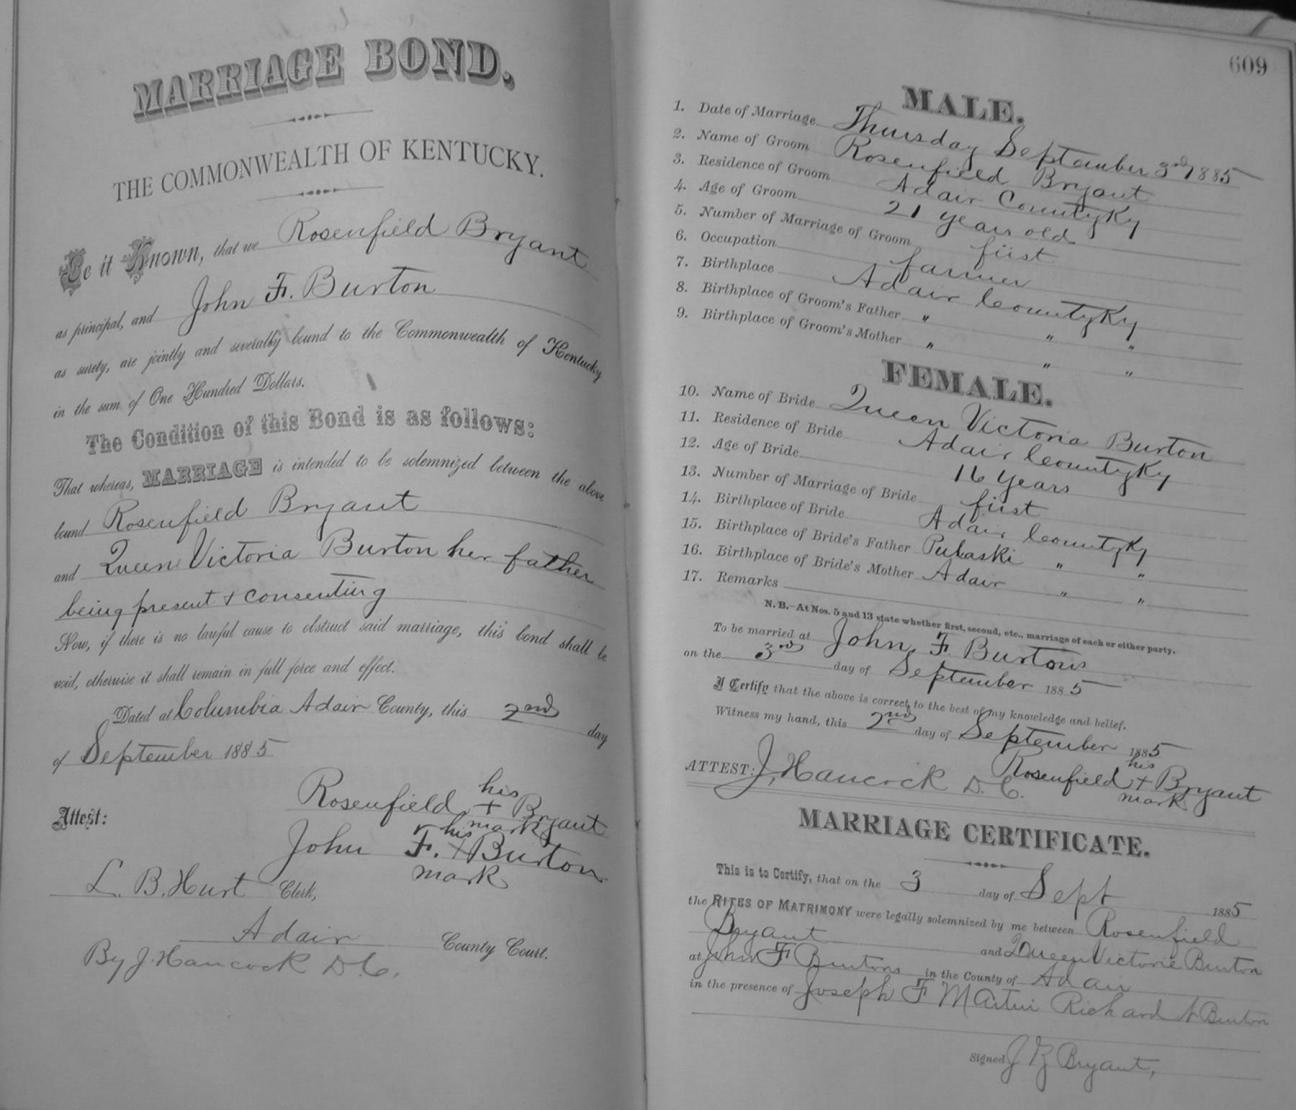 MARRIAGE BOND,
THE COMMONWEALTH OF KENTUCKY.
Be it Known, that we Rosenfield Bryant
as principal, and John F. Burton
as surety, are jointly and severally bound to the Commonwealth of Kentucky
in the sum of One Hundred Dollars.
The Condition of this Bond is as follows:
That whereas, MARRIAGE is intended to be solemnized between the above
bound Rosenfield Bryant
and Queen Victoria Burton her father
being present + consenting
Now, if there is no lawful cause to obstruct said marriage, this bond shall be
void, otherwise it shall remain in full force and effect.
Dated at Columbia Adair County, this 2nd day
of September 1885
Rosenfield his + mark Bryant
Attest:
John F. his + mark Burton
L. B. Hurt Clerk,
Adair County Court.
By J. Hancock D.C.
609
MALE.
1. Date of Marriage Thursday September 3rd 1885
2. Name of Groom Rosenfield Bryant
3. Residence of Groom Adair County Ky
4. Age of Groom 21 years old
5. Number of Marriage of Groom first
6. Occupation farmer
7. Birthplace Adair County Ky
8. Birthplace of Groom's Father " " "
9. Birthplace of Groom's Mother " " "
FEMALE.
10. Name of Bride Queen Victoria Burton
11. Residence of Bride Adair County Ky
12. Age of Bride 16 years
13. Number of Marriage of Bride first
14. Birthplace of Bride Adair County Ky
15. Birthplace of Bride's Father Pulaski " "
16. Birthplace of Bride's Mother Adair " "
17. Remarks
N. B.—At Nos. 5 and 13 state whether first, second, etc., marriage of each or either party.
To be married at John F Burtons
on the 3rd day of September 1885
I Certify that the above is correct, to the best of my knowledge and belief.
Witness my hand, this 2nd day of September 1885
ATTEST: J. Hancock D.C. Rosenfield his + mark Bryant
MARRIAGE CERTIFICATE.
This is to Certify, that on the 3 day of Sept 1885
the RITES OF MATRIMONY were legally solemnized by me between Rosenfield
Bryant and Queen Victorie Burton
at John F Burtons in the County of Adair
in the presence of Joseph F Martin Richard Burton
Signed J Z Bryant,